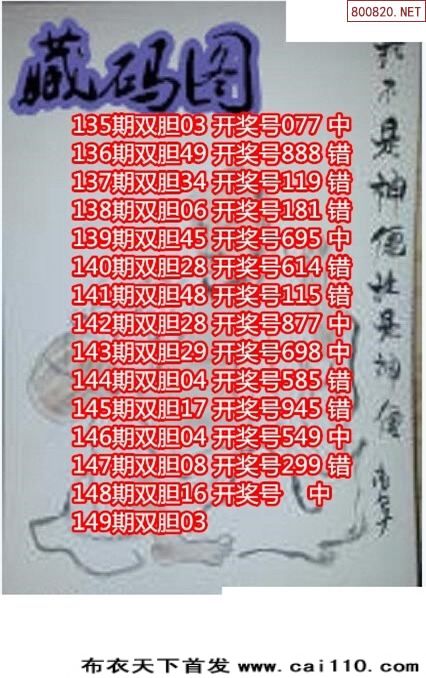 800820.NET
藏码图
135期双胆03 开奖号077 中
136期双胆49 开奖号888 错
137期双胆34 开奖号119 错
138期双胆06 开奖号181 错
139期双胆45 开奖号695 中
140期双胆28 开奖号614 错
141期双胆48 开奖号115 错
142期双胆28 开奖号877 中
143期双胆29 开奖号698 中
144期双胆04 开奖号585 错
145期双胆17 开奖号945 错
146期双胆04 开奖号549 中
147期双胆08 开奖号299 错
148期双胆16 开奖号 中
149期双胆03
不是神便 是神
布衣天下首发 www.cai110.com